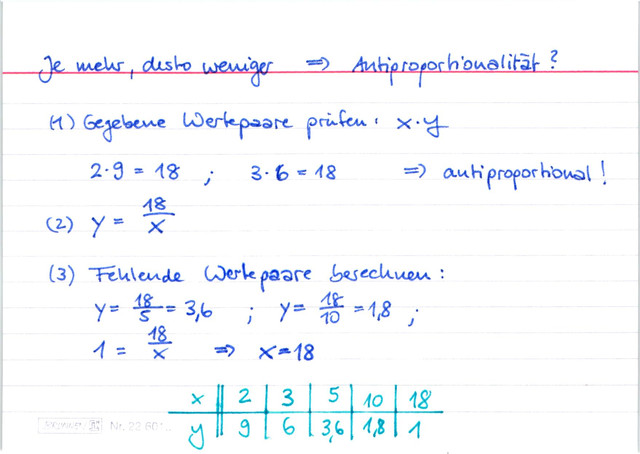 Je mehr, desto weniger => Antiproportionalität?
(1) Gegebene Wertepaare prüfen: x·y
2·9 = 18 ; 3·6 = 18 => antiproportional!
(2) y = 18/x
(3) Fehlende Wertepaare berechnen:
y = 18/5 = 3,6 ; y = 18/10 = 1,8 ;
1 = 18/x => x = 18
x 2 3 5 10 18
y 9 6 3,6 1,8 1
Nr. 22 601